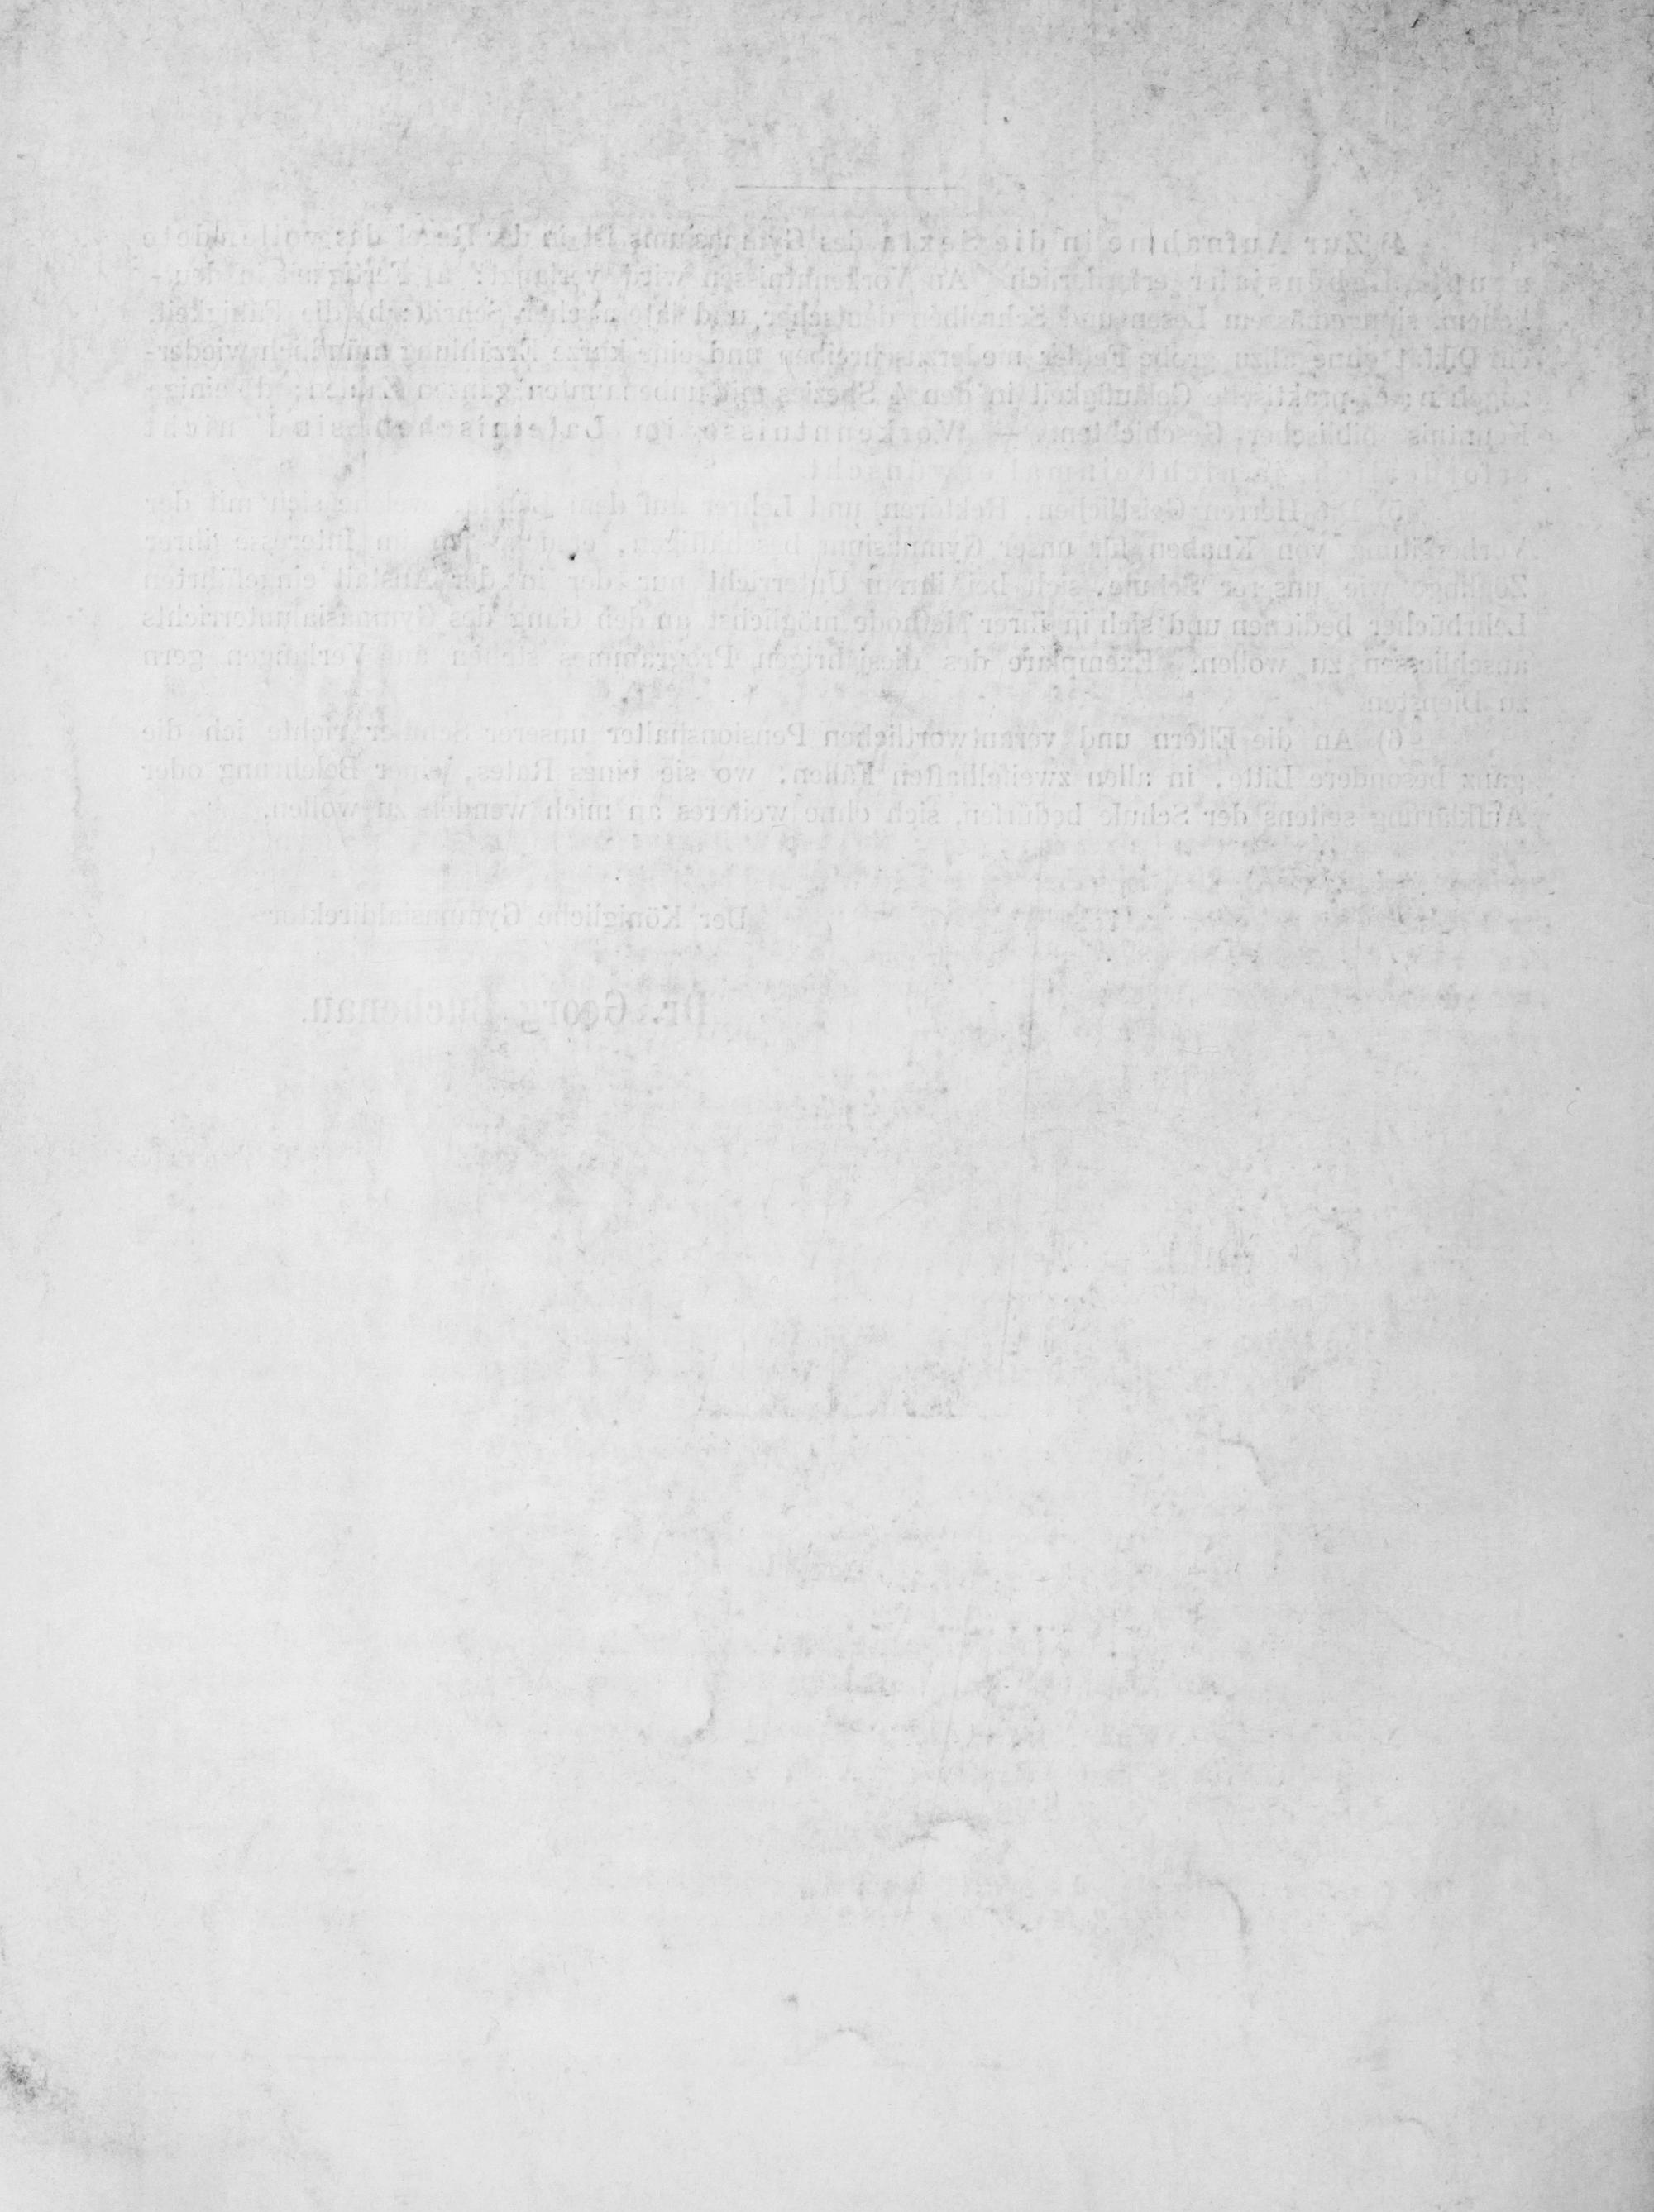 4) Zur Aufnahme in die Sexta des Gymnasiums ist in der Regel das vollendete
neunte Lebensjahr erforderlich. An Vorkenntnissen wird verlangt: a) Fertigkeit in deut-
lichem, sinngemässem Lesen und Schreiben deutscher und lateinischer Schrift; b) die Fähigkeit,
ein Diktat ohne allzu grobe Fehler niederzuschreiben und eine kurze Erzählung mündlich wieder-
zugeben; c) praktische Geläufigkeit in den 4 Spezies mit unbenannten ganzen Zahlen; d) einige
Kenntnis biblischer Geschichten. — Vorkenntnisse im Lateinischen sind nicht
erforderlich, nicht einmal erwünscht.
5) Die Herren Geistlichen, Rektoren und Lehrer auf dem Lande, welche sich mit der
Vorbereitung von Knaben für unser Gymnasium beschäftigen, im Interesse ihrer
Zöglinge wie unserer Schule, sich bei ihrem Unterricht nur der in der Anstalt eingeführten
Lehrbücher bedienen und sich in ihrer Methode möglichst an den Gang des Gymnasialunterrichts
anschliessen zu wollen. Exemplare des diesjährigen Programmes stehen auf Verlangen gern
zu Diensten.
6) An die Eltern und verantwortlichen Pensionshalter unserer Schüler richte ich die
ganz besondere Bitte, in allen zweifelhaften Fällen, wo sie eines Rates, einer Belehrung oder
Aufklärung seitens der Schule bedürfen, sich ohne weiteres an mich wenden zu wollen.
Der Königliche Gymnasialdirektor
Dr. Georg Buchenau.